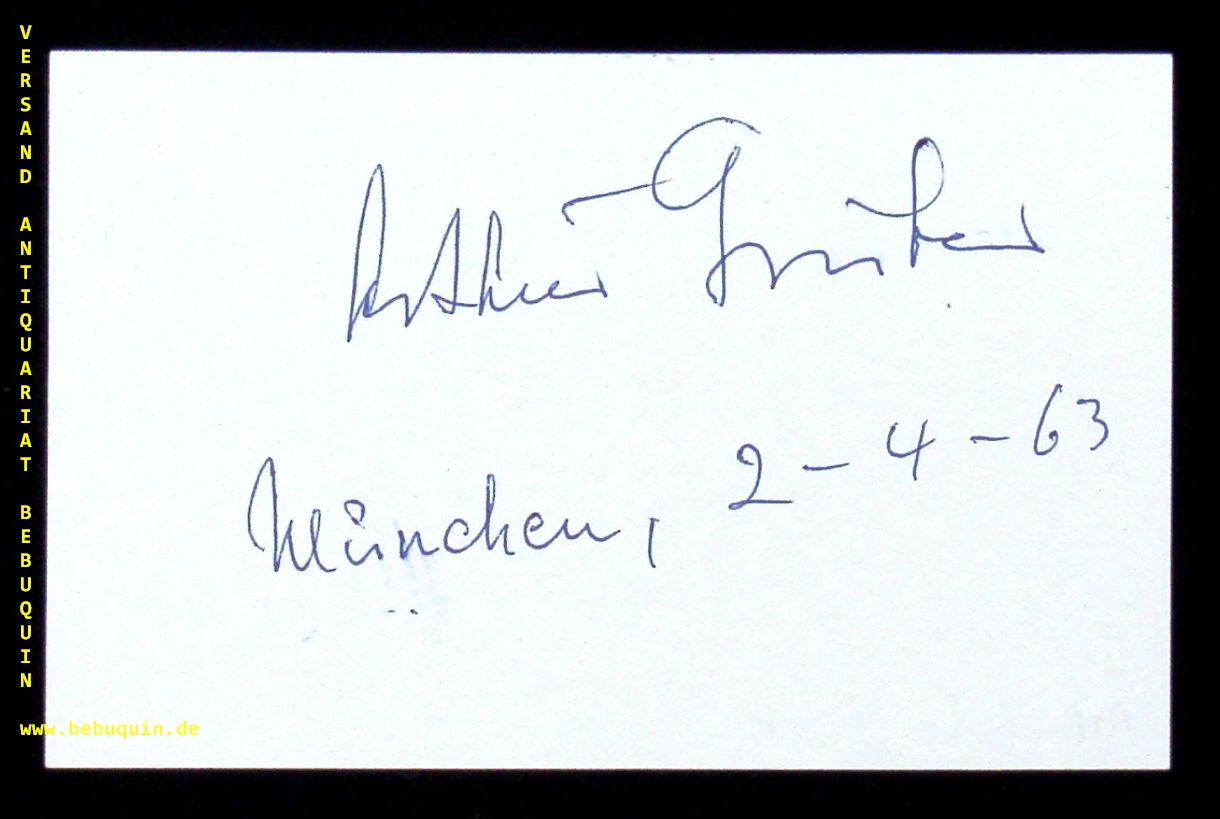 VERSAND ANTIQUARIAT BEBUQUIN
Arthur Gruber
München, 2-4-63
www.bebuquin.de